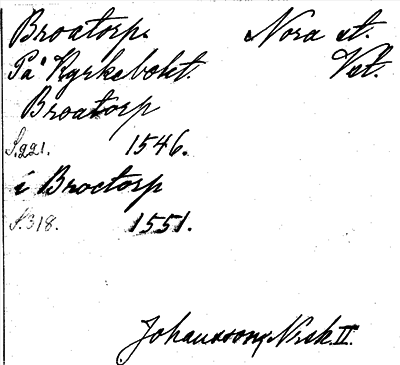 Broatorp. Nora st.
På Kyrkebolet. Vst.
Broatorp
S. 221. 1546.
i Broctorp
S. 318. 1551.
Johanssons Nrsk. II.